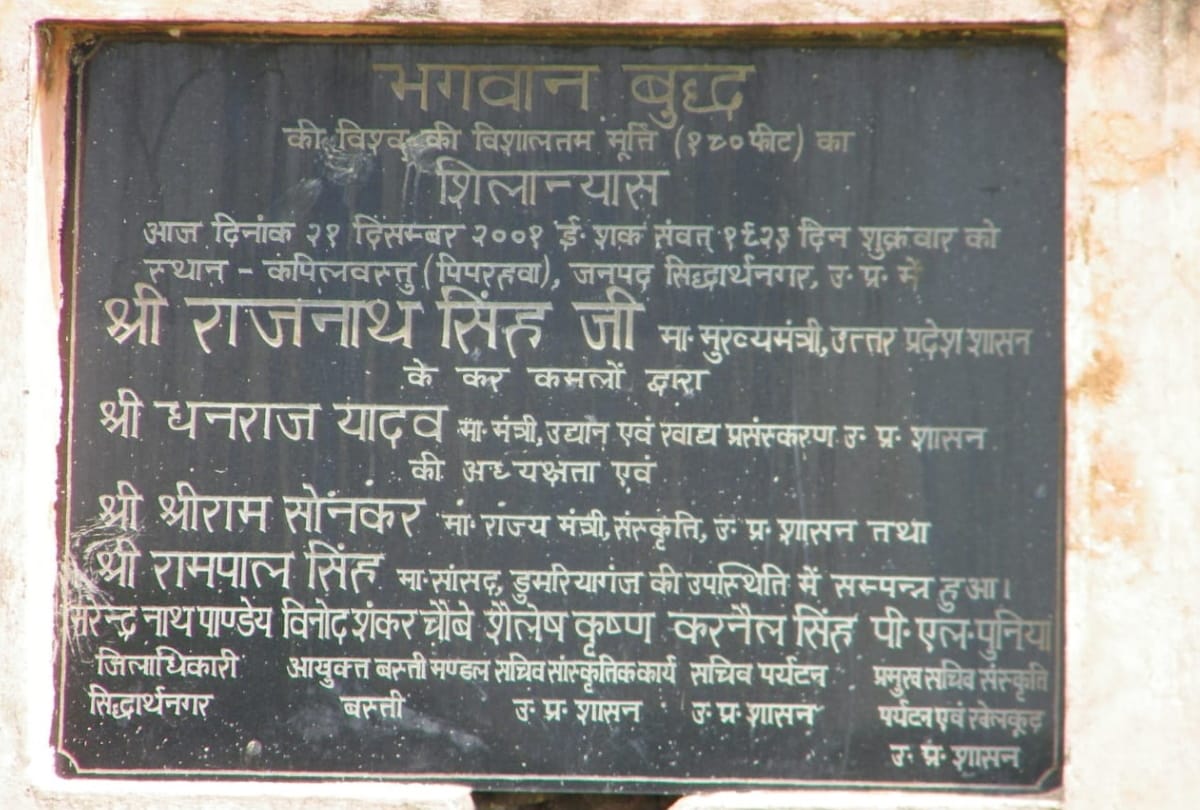 भगवान बुद्ध
की विश्व की विशालतम मूर्त्ति (१८० फीट) का
शिलान्यास
आज दिनांक २१ दिसम्बर २००१ ई॰ शक संवत् १९२३ दिन शुक्रवार को
स्थान - कपिलवस्तु (पिपरहवा), जनपद सिद्धार्थनगर, उ॰ प्र॰ में
श्री राजनाथ सिंह जी मा॰ मुख्यमंत्री, उत्तर प्रदेश शासन
के कर कमलों द्वारा
श्री धनराज यादव मा॰ मंत्री, उद्यान एवं खाद्य प्रसंस्करण उ॰ प्र॰ शासन
की अध्यक्षता एवं
श्री श्रीराम सोनकर मा॰ राज्य मंत्री, संस्कृति, उ॰ प्र॰ शासन तथा
श्री रामपाल सिंह मा॰ सांसद, डुमरियागंज की उपस्थिति में सम्पन्न हुआ।
नाथ पाण्डेय विनोद शंकर चौबे शैलेष कृष्ण करनैल सिंह पी॰ एल॰ पुनिया
जिलाधिकारी आयुक्त बस्ती मण्डल सचिव सांस्कृतिक कार्य सचिव पर्यटन प्रमुख सचिव संस्कृति
सिद्धार्थनगर बस्ती उ॰ प्र॰ शासन उ॰ प्र॰ शासन पर्यटन एवं खेलकूद
उ॰ प्र॰ शासन